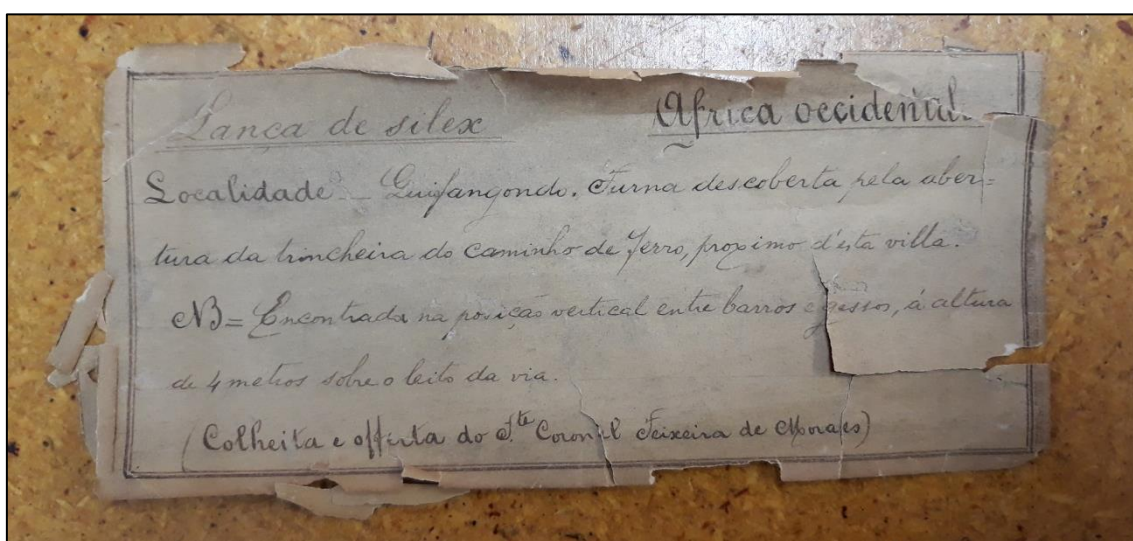 Lança de silex Africa occidental.
Localidade _ Quifangondo. Furna descoberta pela aber=
tura da trincheira do caminho de ferro, proximo d'esta villa.
NB= Encontrada na posição vertical entre barros e gessos, á altura
de 4 metros sobre o leito da via.
(Colheita e offerta do Tte Coronel Teixeira de Moraes)